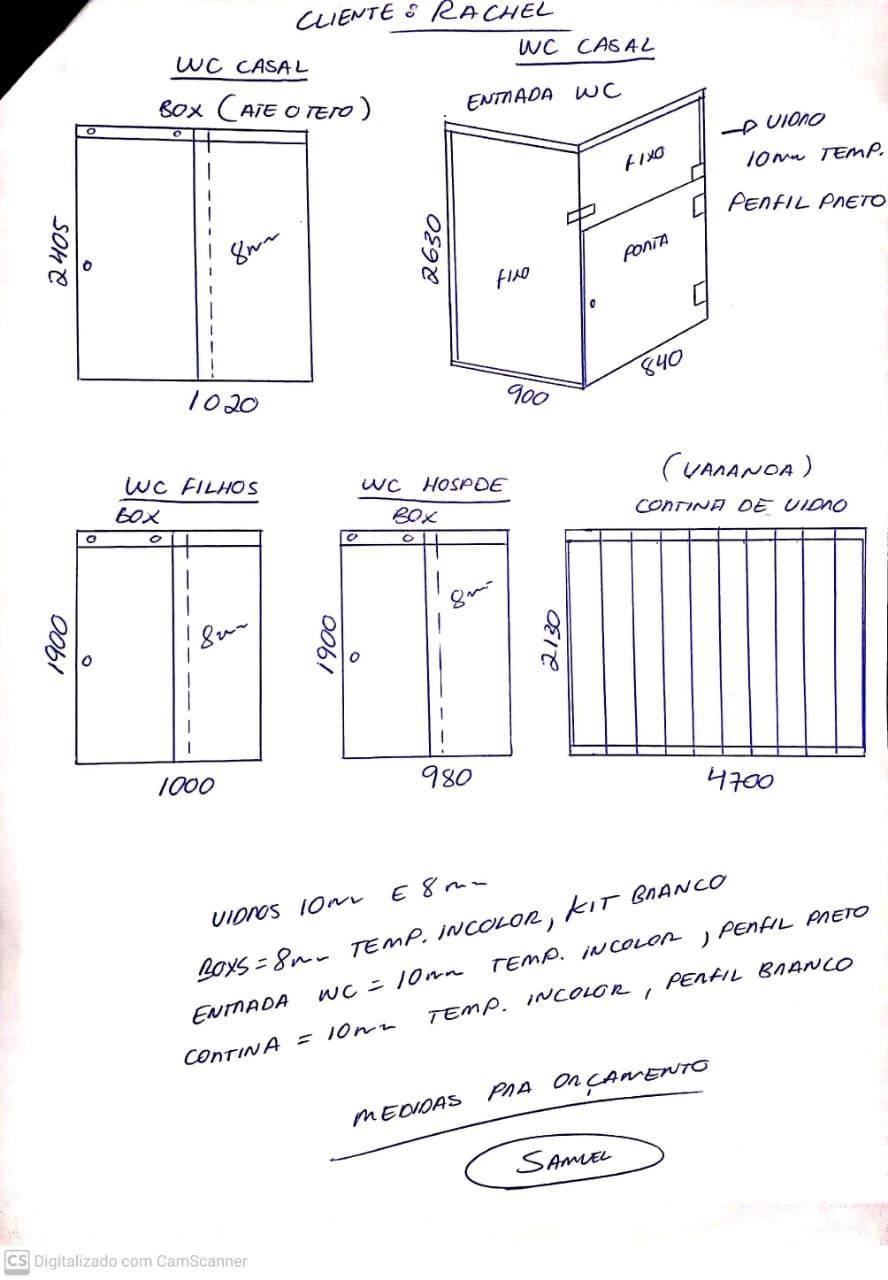 CLIENTE: RACHEL
WC CASAL
BOX (ATE O TETO)
2405
8mm
1020
WC CASAL
ENTRADA WC
FIXO
FIXO
PORTA
2630
900
840
→ VIDRO
10mm TEMP.
PERFIL PRETO
WC FILHOS
BOX
1900
8mm
1000
WC HOSPDE
BOX
1900
8mm
980
(VARANDA)
CORTINA DE VIDRO
2130
4700
VIDROS 10mm E 8mm
BOXS = 8mm TEMP. INCOLOR, KIT BRANCO
ENTRADA WC = 10mm TEMP. INCOLOR, PERFIL PRETO
CORTINA = 10mm TEMP. INCOLOR, PERFIL BRANCO
MEDIDAS PRA ORÇAMENTO
SAMUEL
CS Digitalizado com CamScanner